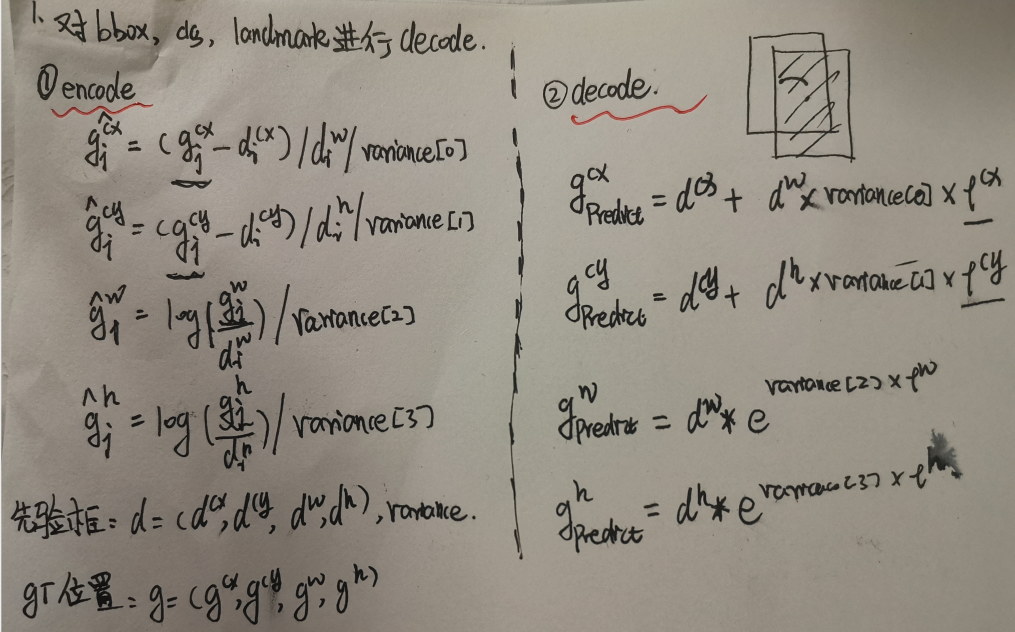 1. 对bbox, ds, landmark进行decode.
① encode
ĝ_j^cx = (g_j^cx - d_i^cx) / d_i^w / variance[0]
ĝ_j^cy = (g_j^cy - d_i^cy) / d_i^h / variance[1]
ĝ_j^w = log(g_j^w / d_i^w) / variance[2]
ĝ_j^h = log(g_j^h / d_i^h) / variance[3]
先验框: d = (d^cx, d^cy, d^w, d^h), variance.
gT位置: g = (g^cx, g^cy, g^w, g^h)
② decode.
g_Predict^cx = d^cx + d^w × variance[0] × l^cx
g_Predict^cy = d^cy + d^h × variance[1] × l^cy
g_Predict^w = d^w * e^(variance[2] × l^w)
g_Predict^h = d^h * e^(variance[3] × l^h)